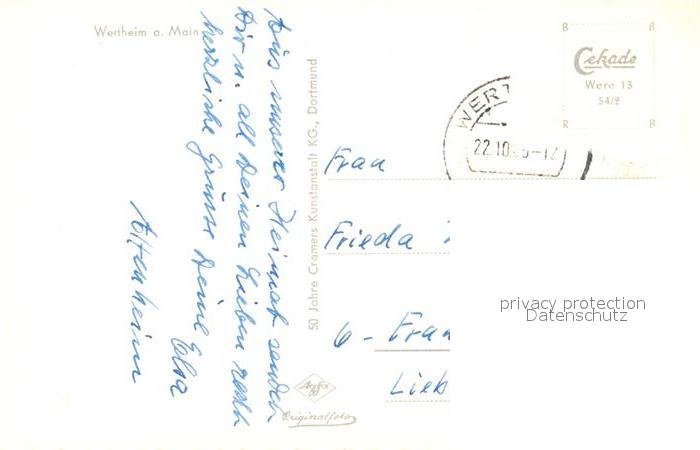 Wertheim a. Main
Aus unserer Heimat sendet
Dir u. all Deinen Lieben recht
herzliche Grüsse Deine Elsa
Altenheim
50 Jahre Cramers Kunstanstalt KG., Dortmund
Agfa
Originalfoto
B B
Cekade
Were 13
54/2
R B
WERT
22.10.
-12
Frau
Frieda
6 - Fran
Lieb
privacy protection
Datenschutz